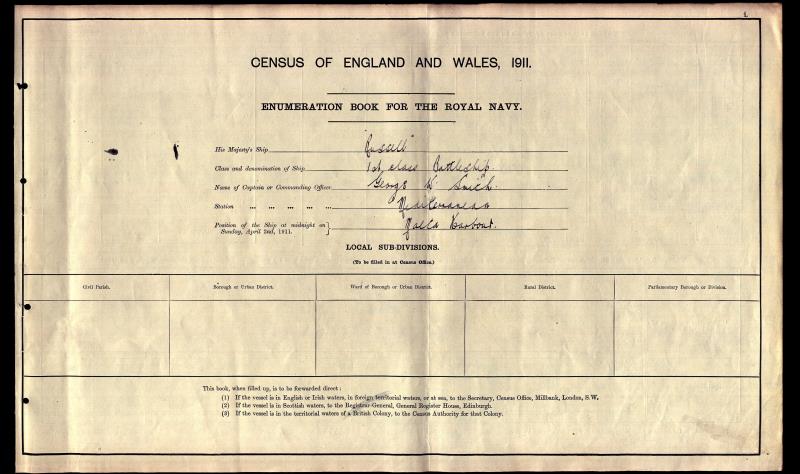 1.
CENSUS OF ENGLAND AND WALES, 1911.
ENUMERATION BOOK FOR THE ROYAL NAVY.
His Majesty's Ship Russell"
Class and denomination of Ship 1st class Battleship.
Name of Captain or Commanding Officer George W. Smith.
Station ... ... ... ... ... Mediterranean
Position of the Ship at midnight on Sunday, April 2nd, 1911. } Malta Harbour.
LOCAL SUB-DIVISIONS.
(To be filled in at Census Office.)
Civil Parish. Borough or Urban District. Ward of Borough or Urban District. Rural District. Parliamentary Borough or Division.
This book, when filled up, is to be forwarded direct:
(1) If the vessel is in English or Irish waters, in foreign territorial waters, or at sea, to the Secretary, Census Office, Millbank, London, S.W.
(2) If the vessel is in Scottish waters, to the Registrar-General, General Register House, Edinburgh.
(3) If the vessel is in the territorial waters of a British Colony, to the Census Authority for that Colony.